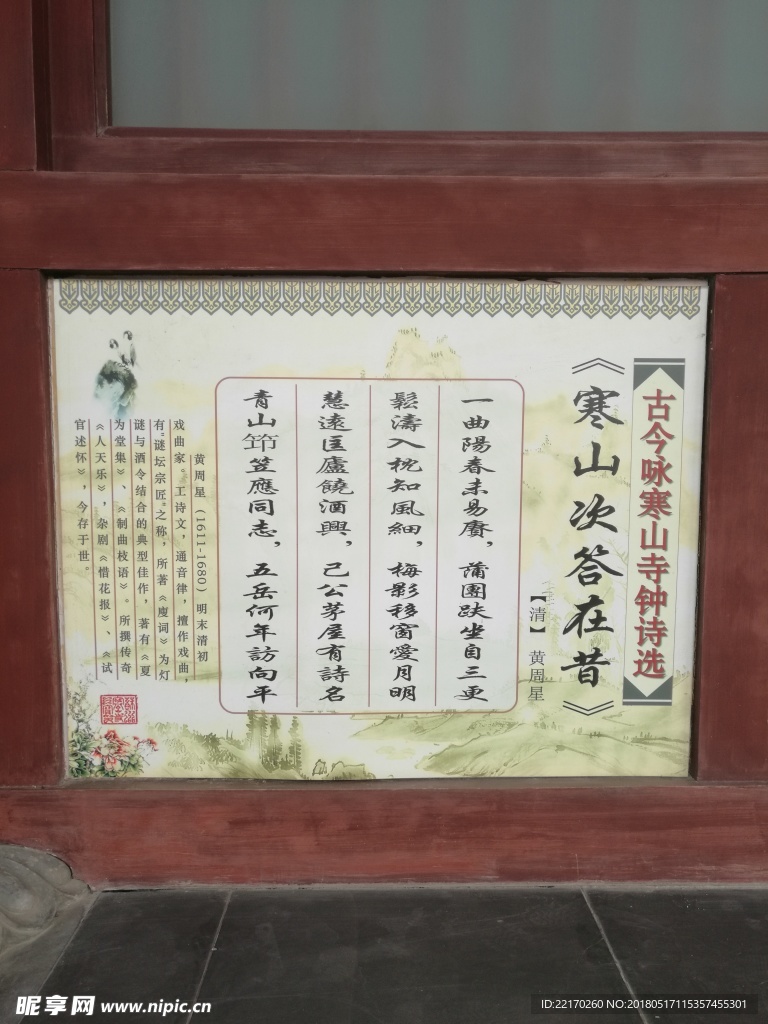 古今咏寒山寺钟诗选
《寒山次答在昔》
【清】 黄周星
一曲陽春未易賡，蒲團趺坐自三更
鬆濤入枕知風細，梅影移窗愛月明
慧遠匡廬饒酒興，己公茅屋有詩名
青山笻笠應同志，五岳何年訪向平
黄周星（1611-1680）明末清初
戏曲家。工诗文，通音律，擅作戏曲，
有“谜坛宗匠”之称，所著《廋词》为灯
谜与酒令结合的典型佳作，著有《夏
为堂集》、《制曲枝语》。所撰传奇
《人天乐》，杂剧《惜花报》、《试
官述怀》，今存于世。
昵享网 www.nipic.cn
ID:22170260 NO:20180517115357455301